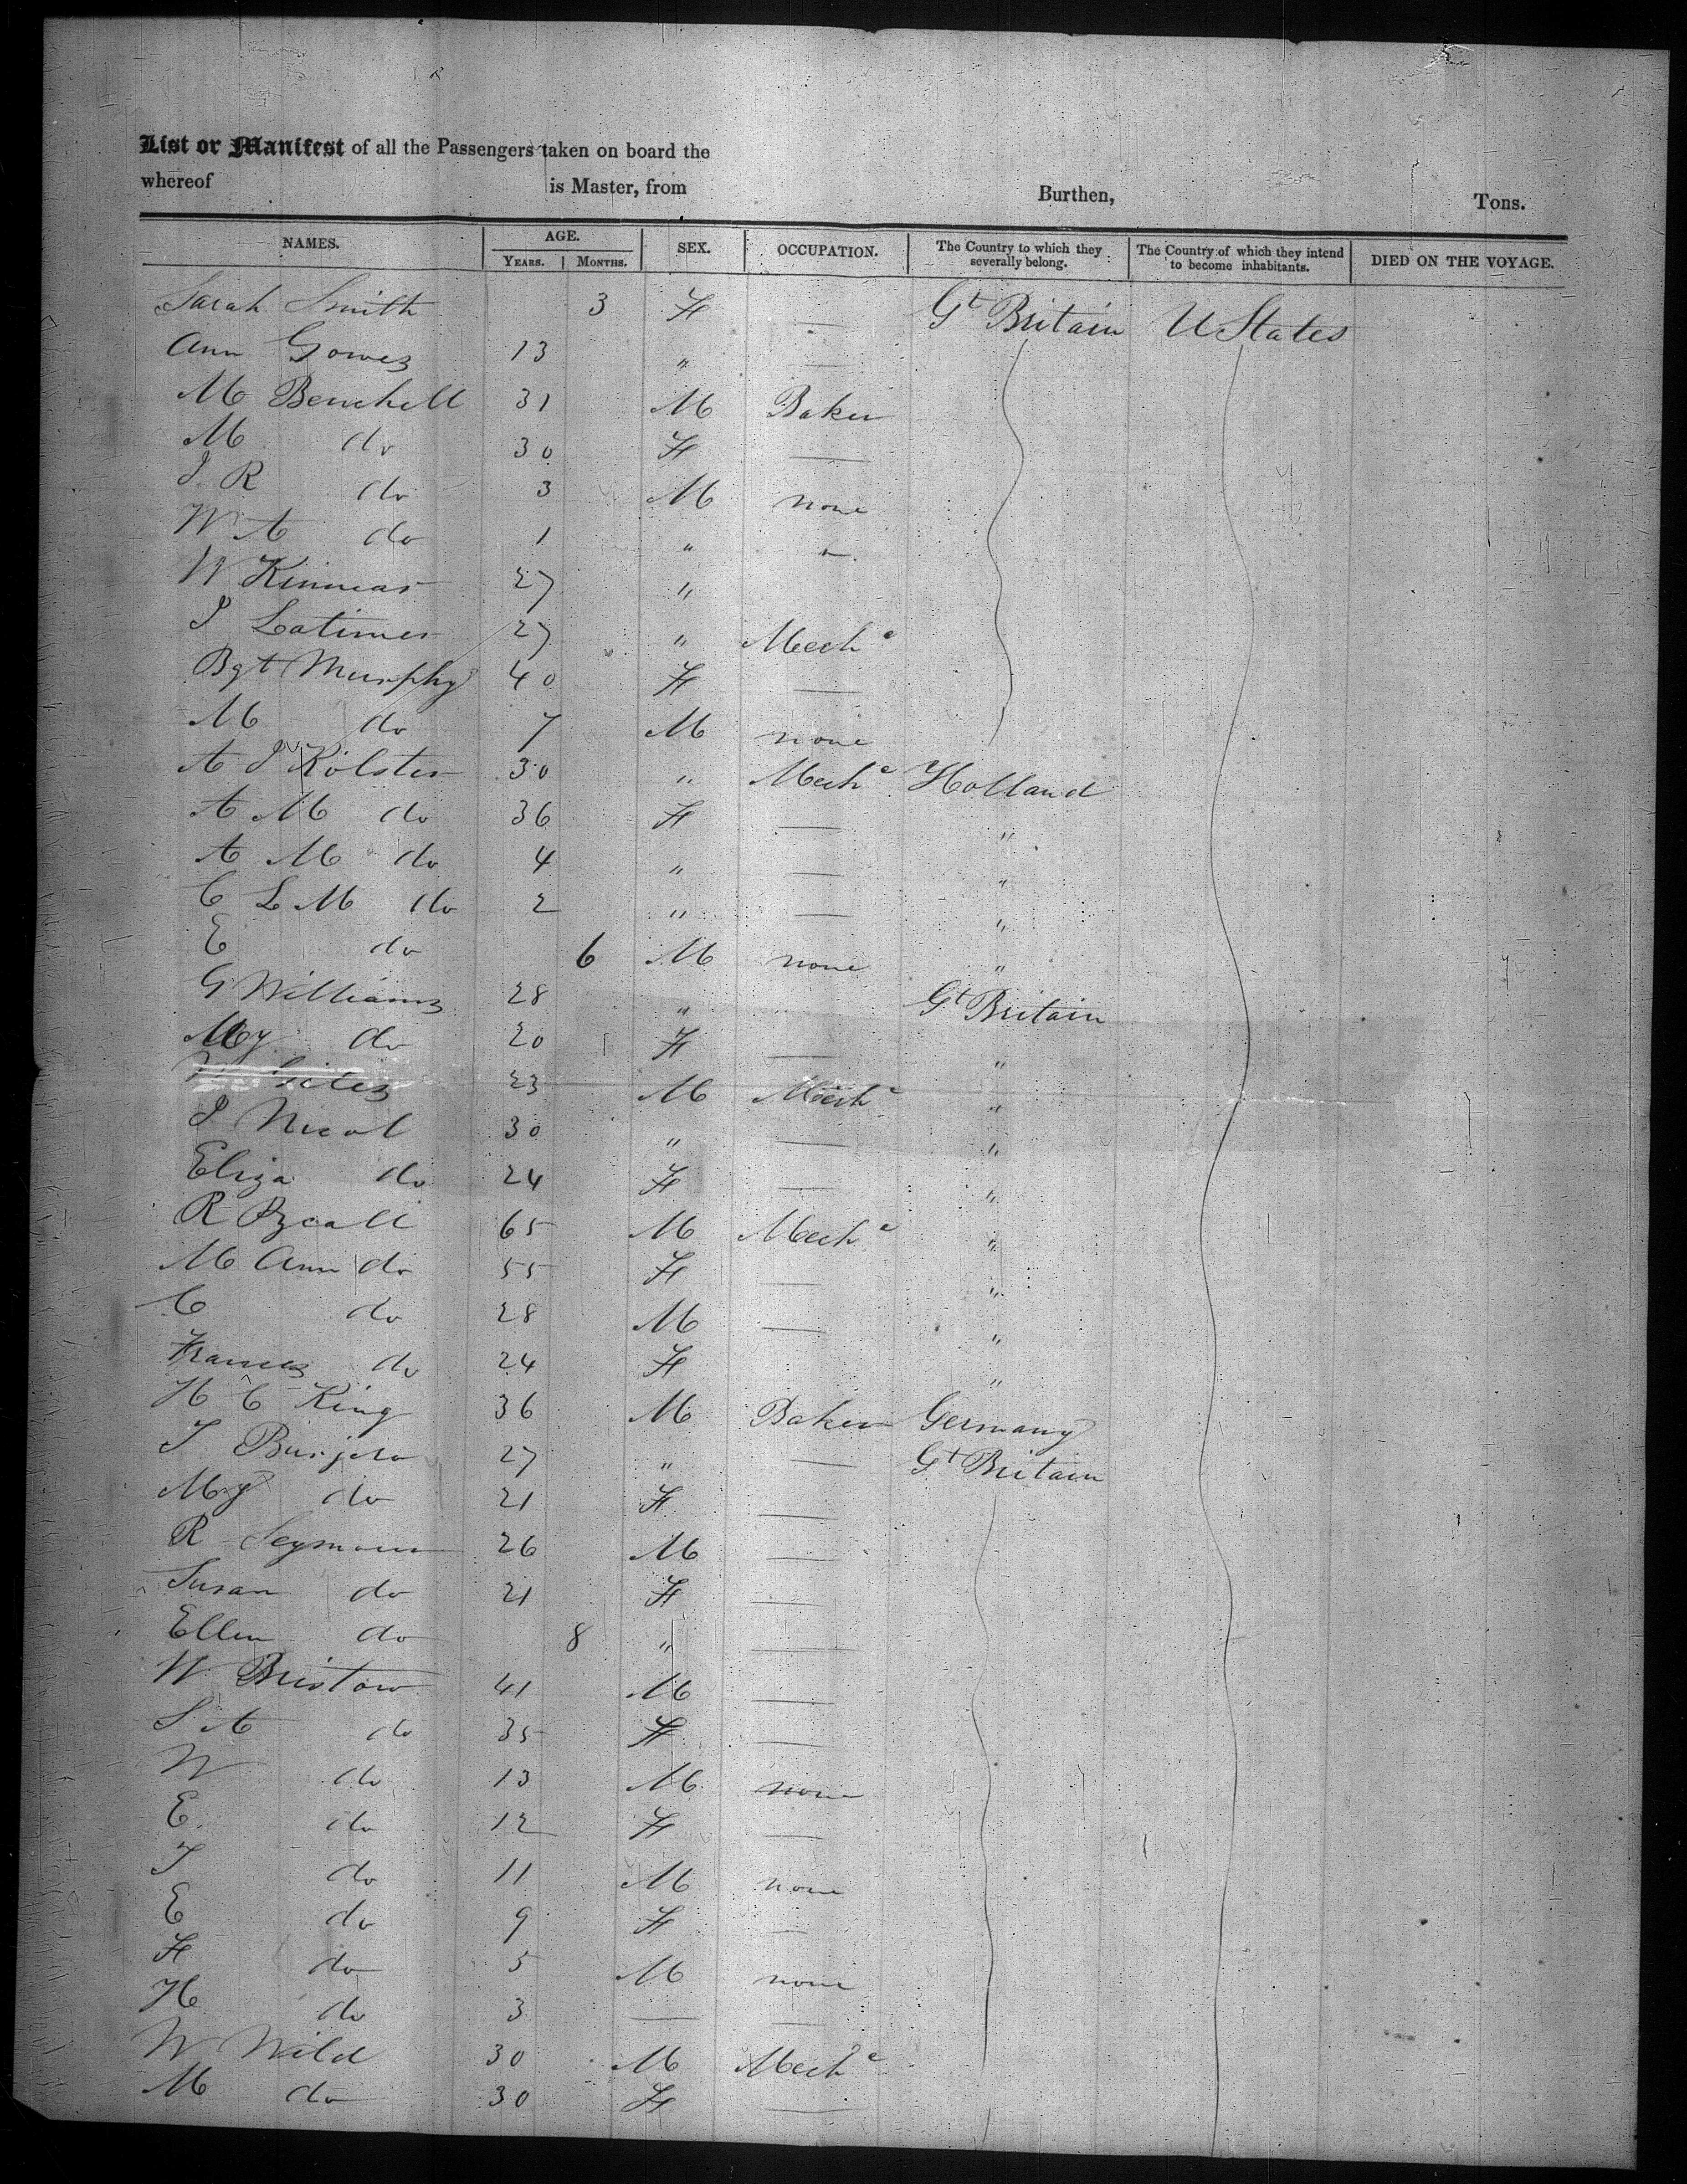 List or Manifest of all the Passengers taken on board the
whereof is Master, from Burthen, Tons.
NAMES. AGE. YEARS. MONTHS. SEX. OCCUPATION. The Country to which they severally belong. The Country of which they intend to become inhabitants. DIED ON THE VOYAGE.
Sarah Smith 3 F — Gt Britain U States
Ann Gowez 13 " —
M Benchell 31 M Baker
M do 30 F —
J R do 3 M none
W A do 1 " "
W Kinnear 27 "
J Latimer 27 " Mechc
Bgt Murphy 40 F —
M do 7 M none
A J Kolster 30 " Mechc Holland
A M do 36 F — "
A M do 4 " — "
C L M do 2 " — "
E do 6 M none "
G Williams 28 " Gt Britain
My do 20 F — "
W 23 M Mechc "
J Nicol 30 " — "
Eliza do 24 F — "
R 65 M Mechc "
M Ann do 55 F — "
C do 28 M — "
Frances do 24 F "
H C King 36 M Baker Germany
T 27 " — Gt Britain
My do 21 F —
R Seymour 26 M —
Susan do 21 F —
Ellen do 8 " —
W Bristow 41 M —
S A do 35 F —
W do 13 M none
E. do 12 F —
T do 11 M none
E do 9 F —
F do 5 M none
H do 3 — —
W Wild 30 M Mechc
M do 30 F —